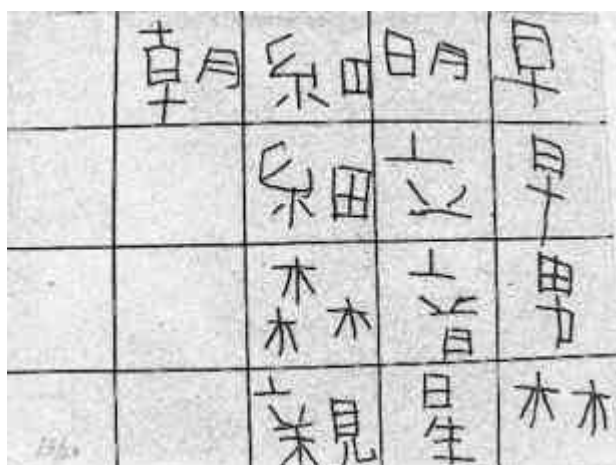 早早男林
明立音星
糸日細森親
朝